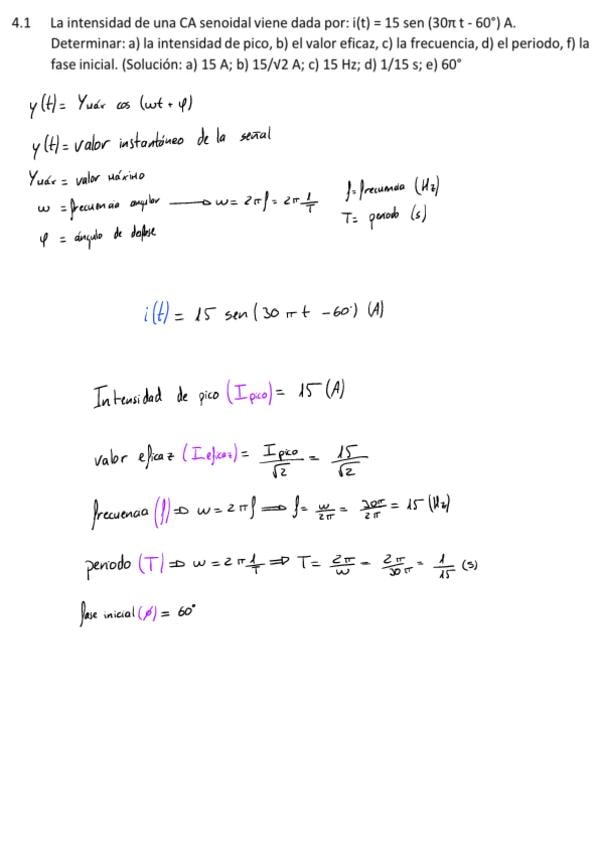 4.1 La intensidad de una CA senoidal viene dada por: i(t) = 15 sen (30π t - 60°) A.
Determinar: a) la intensidad de pico, b) el valor eficaz, c) la frecuencia, d) el periodo, f) la
fase inicial. (Solución: a) 15 A; b) 15/√2 A; c) 15 Hz; d) 1/15 s; e) 60°
y(t) = Ymáx cos (ωt + φ)
y(t) = valor instantáneo de la señal
Ymáx = valor máximo
ω = frecuencia angular → ω = 2π f = 2π 1/T f = frecuencia (Hz)
T = periodo (s)
φ = ángulo de desfase
i(t) = 15 sen (30 π t - 60°) (A)
Intensidad de pico (I pico) = 15 (A)
valor eficaz (I eficaz) = I pico/√2 = 15/√2
frecuencia (f) ⇒ ω = 2π f ⇒ f = ω/2π = 30π/2π = 15 (Hz)
periodo (T) ⇒ ω = 2π 1/T ⇒ T = 2π/ω = 2π/30π = 1/15 (s)
fase inicial (φ) = 60°